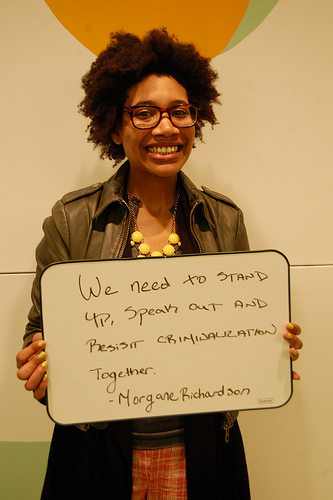 We need to STAND
up, Speak out AND
Resisit CRIMINALIZATION
Together.
- Morgane Richardson